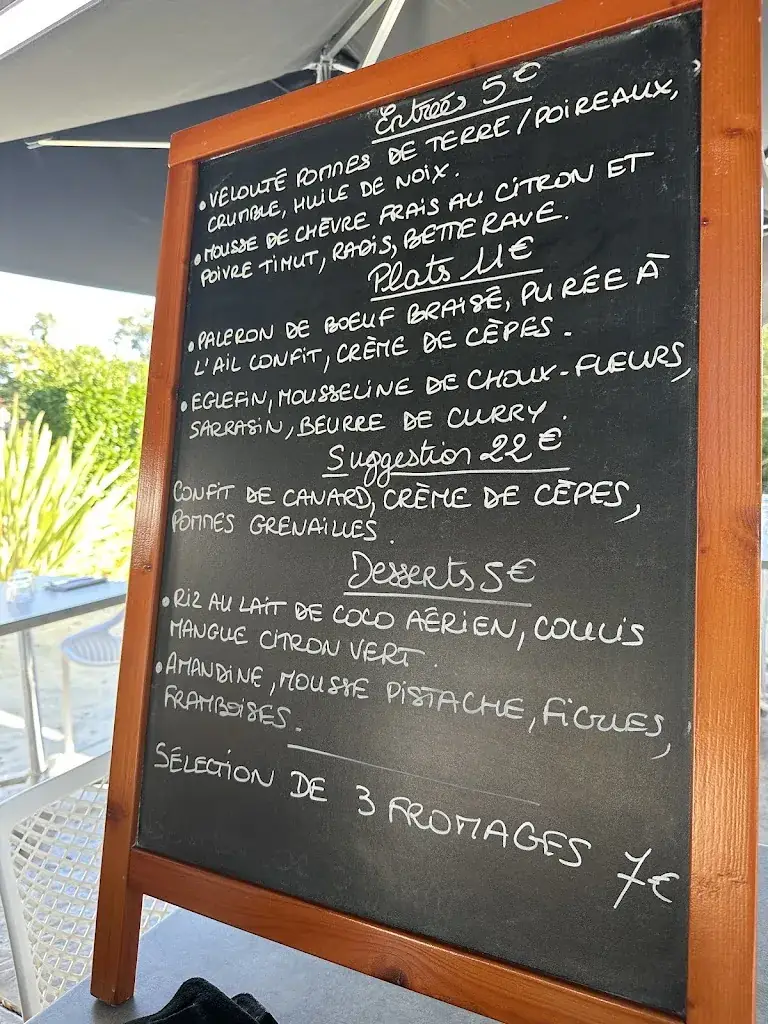 Entrées 5€
• VELOUTÉ POMMES DE TERRE / POIREAUX,
CRUMBLE, HUILE DE NOIX.
• MOUSSE DE CHÈVRE FRAIS AU CITRON ET
POIVRE TIMUT, RADIS, BETTERAVE.
Plats 11€
• PALERON DE BOEUF BRAISÉ, PURÉE À
L'AIL CONFIT, CRÈME DE CÈPES.
• EGLEFIN, MOUSSELINE DE CHOUX-FLEURS,
SARRASIN, BEURRE DE CURRY.
Suggestion 22€
CONFIT DE CANARD, CRÈME DE CÈPES,
POMMES GRENAILLES.
Desserts 5€
• RIZ AU LAIT DE COCO AÉRIEN, COULIS
MANGUE CITRON VERT.
• AMANDINE, MOUSSE PISTACHE, FIGUES,
FRAMBOISES.
SÉLECTION DE 3 FROMAGES 7€